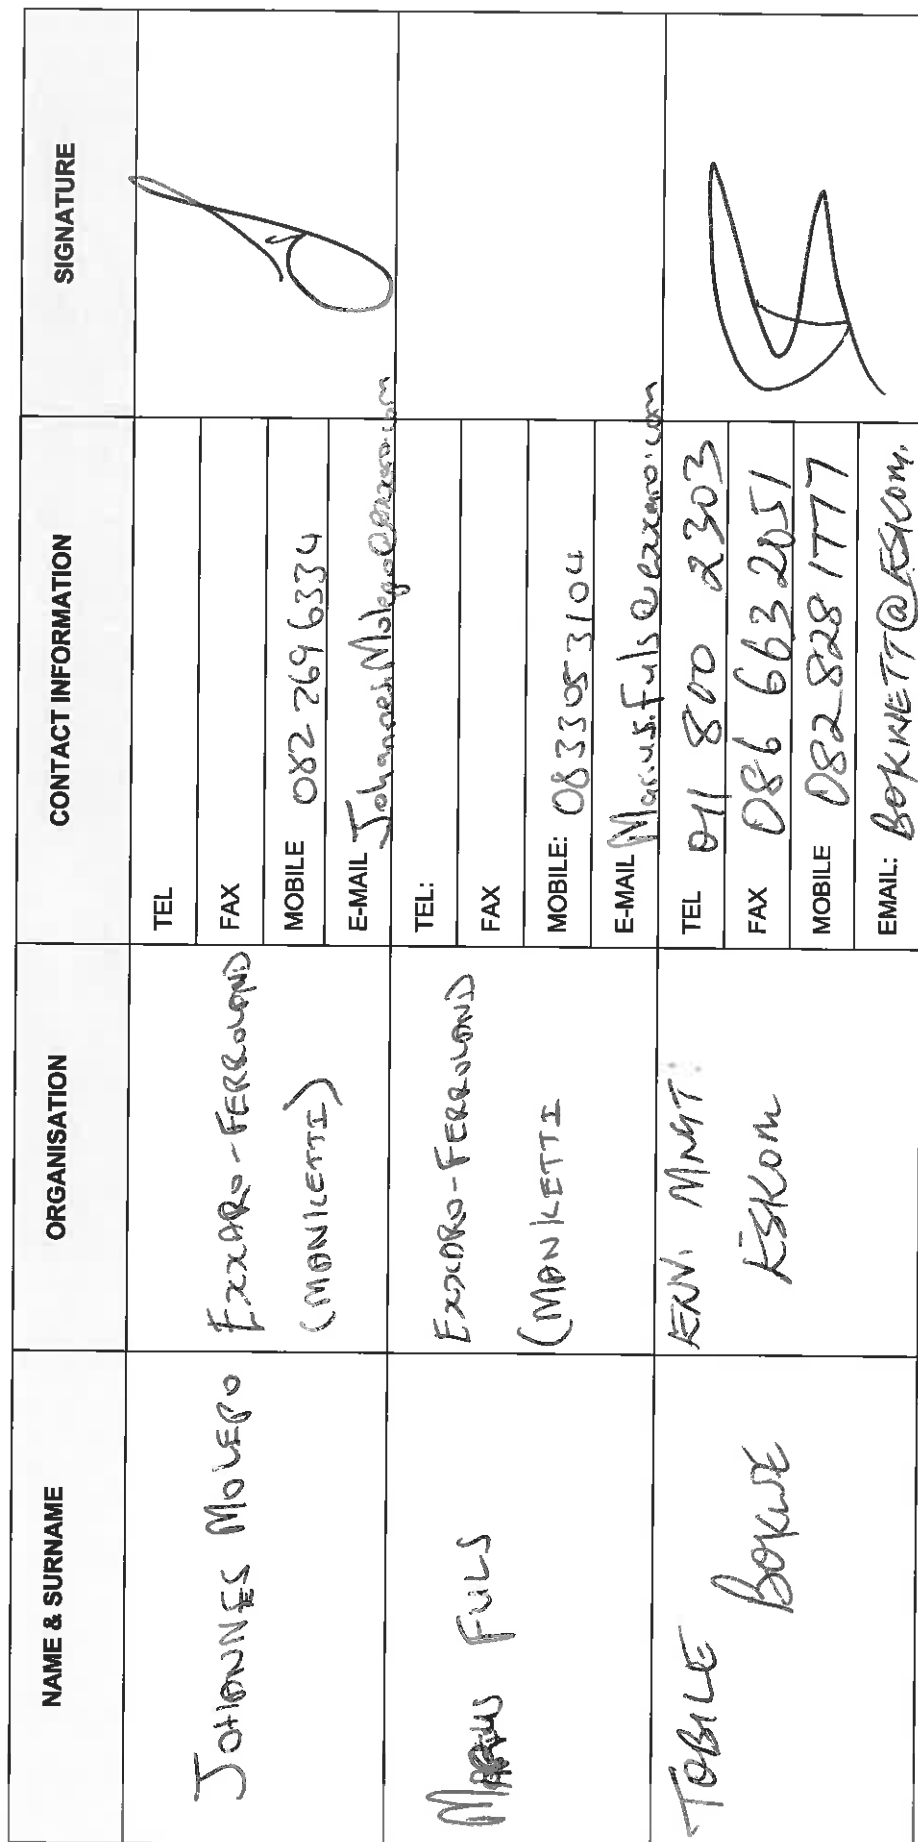 NAME & SURNAME ORGANISATION CONTACT INFORMATION SIGNATURE
JOHANNES MOLEPO
EXXARO-FERROLAND
(MANKETTI)
TEL
FAX
MOBILE 082 269 6334
E-MAIL Johannes.Molepo@exxaro.com
MARIUS FULS
EXXARO-FERROLAND
(MANKETTI
TEL:
FAX
MOBILE: 083 305 3104
E-MAIL Marius.Fuls@exxaro.com
TOBILE BOKWE
ENV. MNGT.
ESKOM
TEL 011 800 2303
FAX 086 663 2051
MOBILE 082 828 1777
EMAIL: BOKWETT@ESKOM.